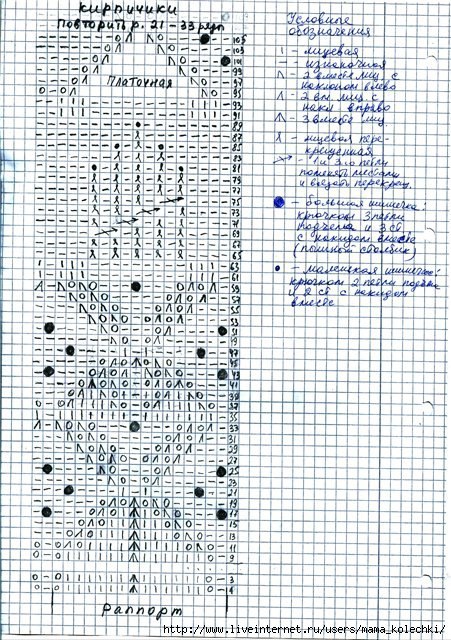 кирпичики
повторить р. 21 - 33 ряд
Условные
обозначения
| - лицевая
- - изнаночная
2 вместе лиц. с
наклоном влево
2 вм. лиц. с
накл вправо
3 вместе лиц
- лицевая пере-
крещенная
- 1 и 3-ю петли
поменять местами
и вязать перекрещ.
- большая шишечка:
крючком 3 петли
подъема и 3 ст
с накидом вместе
(пышный столбик)
- маленькая шишечка:
крючком 2 петли подъема
и 2 ст с накидом
вместе
Платочная
105
103
101
99
97
95
93
91
89
87
85
83
81
79
77
75
73
71
69
67
65
63
61
59
57
55
53
51
49
47
45
43
41
39
37
35
33
31
29
27
25
23
21
19
17
15
13
11
9
3
1
Раппорт
http://www.liveinternet.ru/users/mama_kolechki/